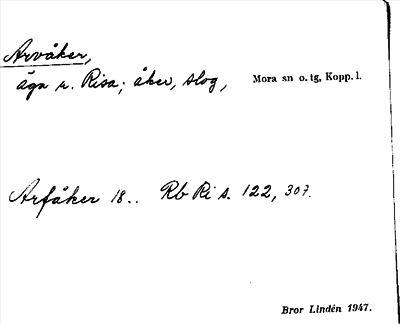 Arvåker,
ägn r. Risa; åker, slog, Mora sn o. tg, Kopp. l.
Arfåker 18.. Rb Ri s. 122, 307.
Bror Lindén 1947.